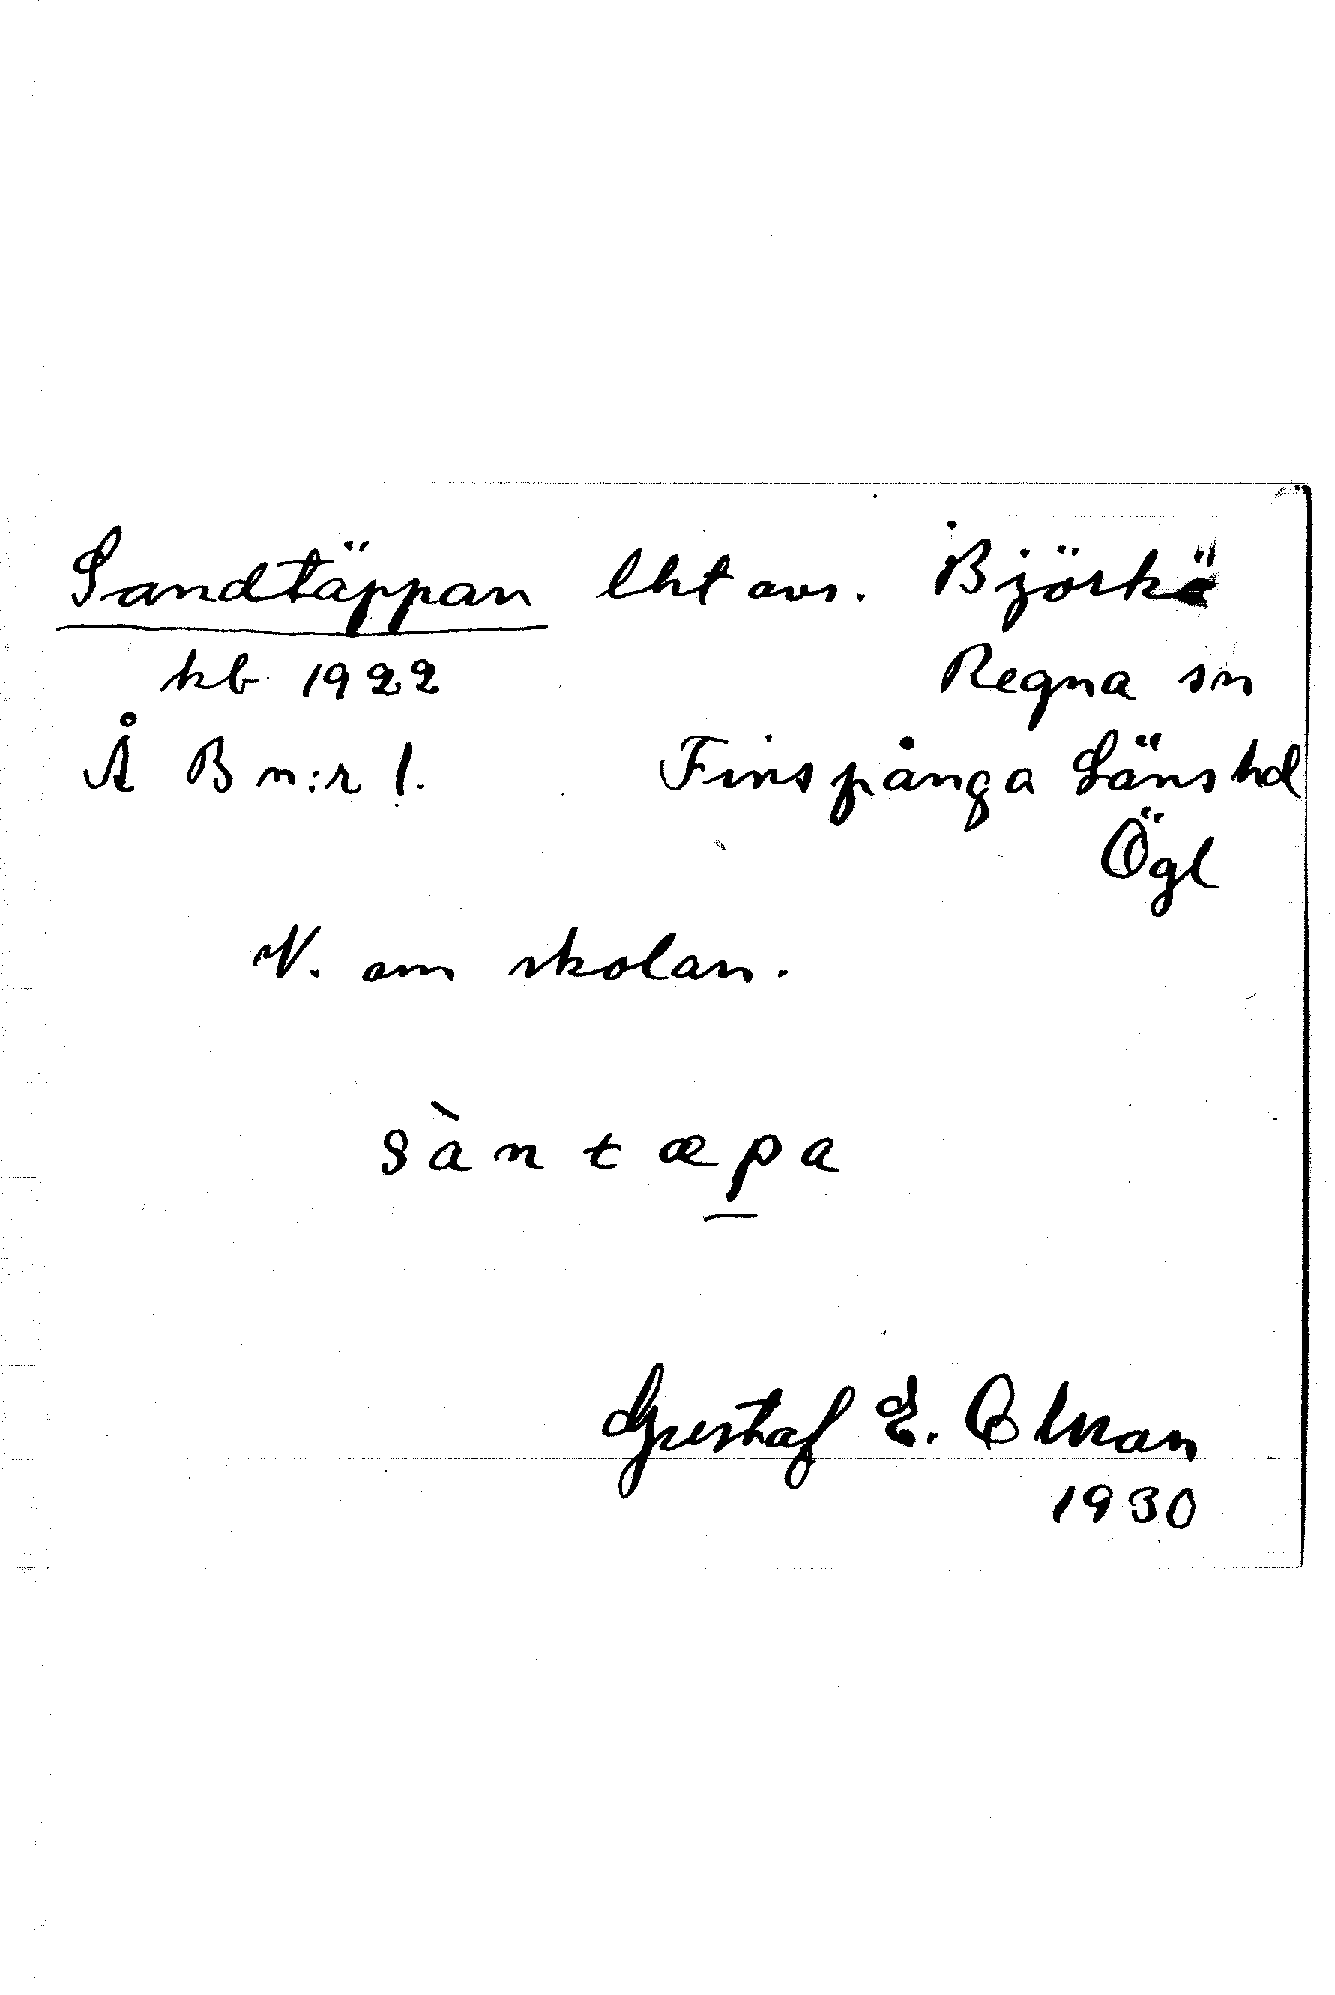 Sandtäppan lht avs. Björkö
kb 1922 Regna sn
Å B n:r 1. Finspånga Läns hd
Ögl
V. om skolan.
sàntæpa
Gustaf E. Olman
1930